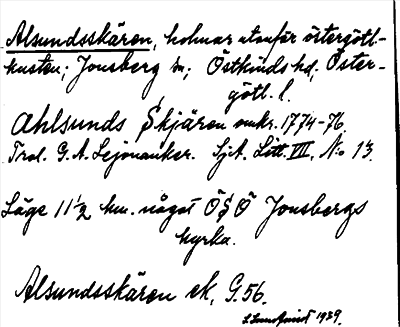 Alsundsskären, holmar utanför östergötl-
kusten; Jonsberg sn; Östkinds hd; Öster-
götl. l.
Ahlsunds Skjären omkr. 1774-76.
Trol. G. A. Lejonanker. SjA. Litt. VII, No 13.
Läge 11 1/2 km. något ÖSÖ Jonsbergs
kyrka.
Alsundsskären ek, G.56.
1939.